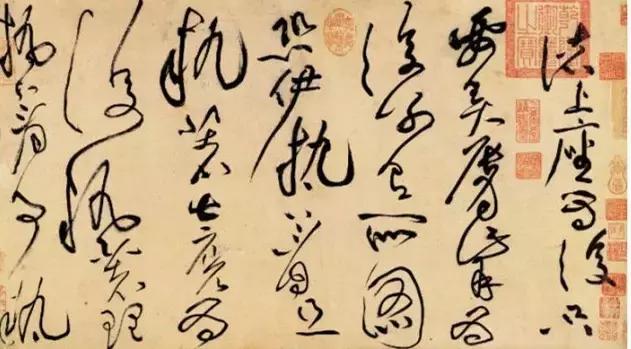 諸上座為復只
要弄脣觜為
復別有所圖
恐伊執著且
執著甚麼為
復執著理
執著事執